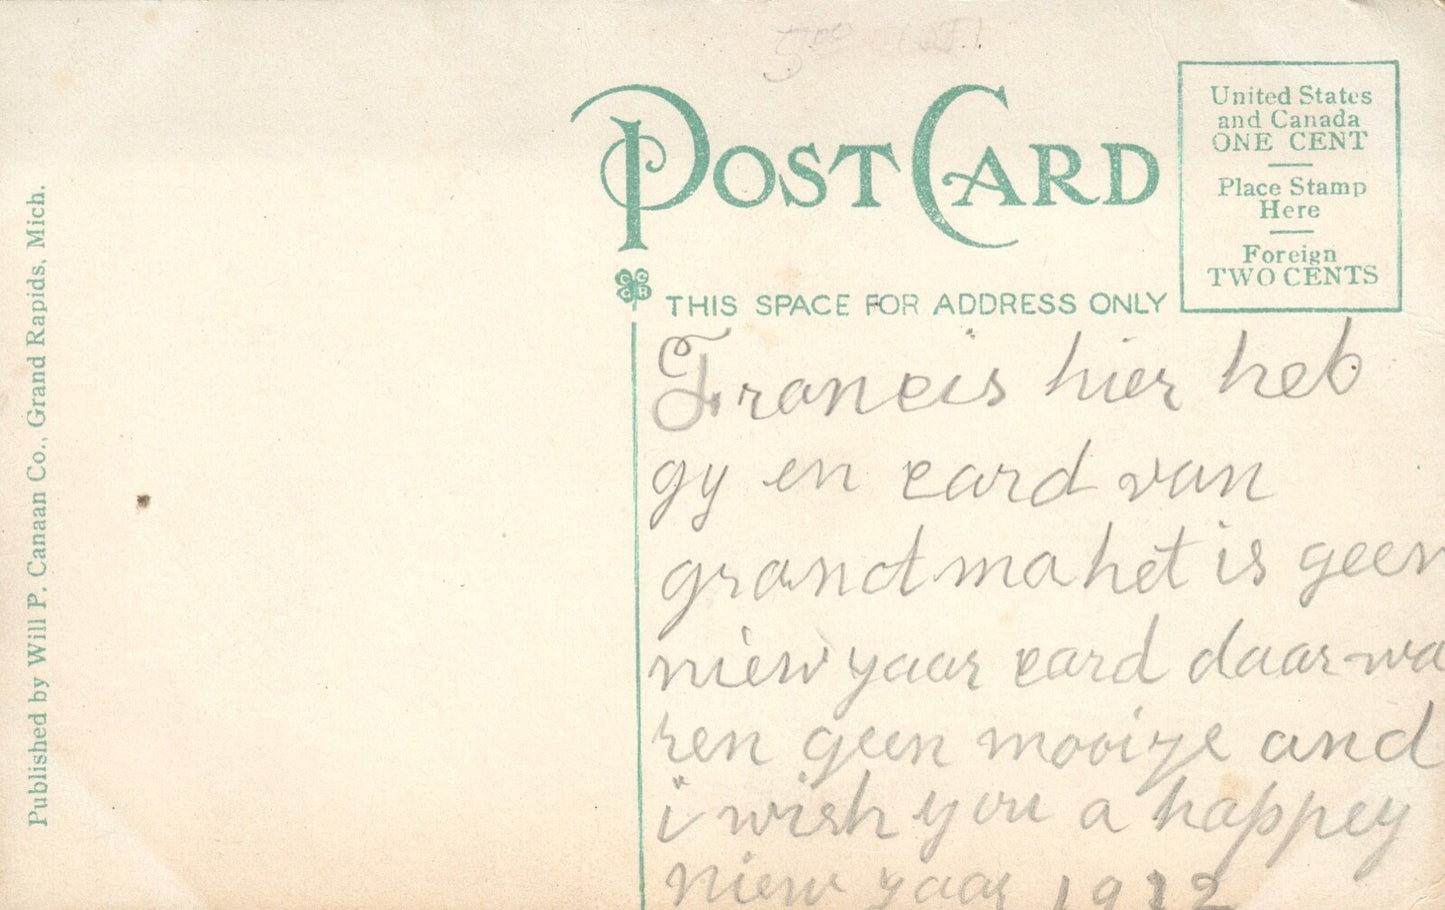 POST CARD
United States
and Canada
ONE CENT
Place Stamp
Here
Foreign
TWO CENTS
THIS SPACE FOR ADDRESS ONLY
Francis hier heb
gy en card van
grandma het is geen
niew yaar card daar wa
ren geen mooiye and
i wish you a happey
niew yaar 1912
Published by Will P. Canaan Co., Grand Rapids, Mich.